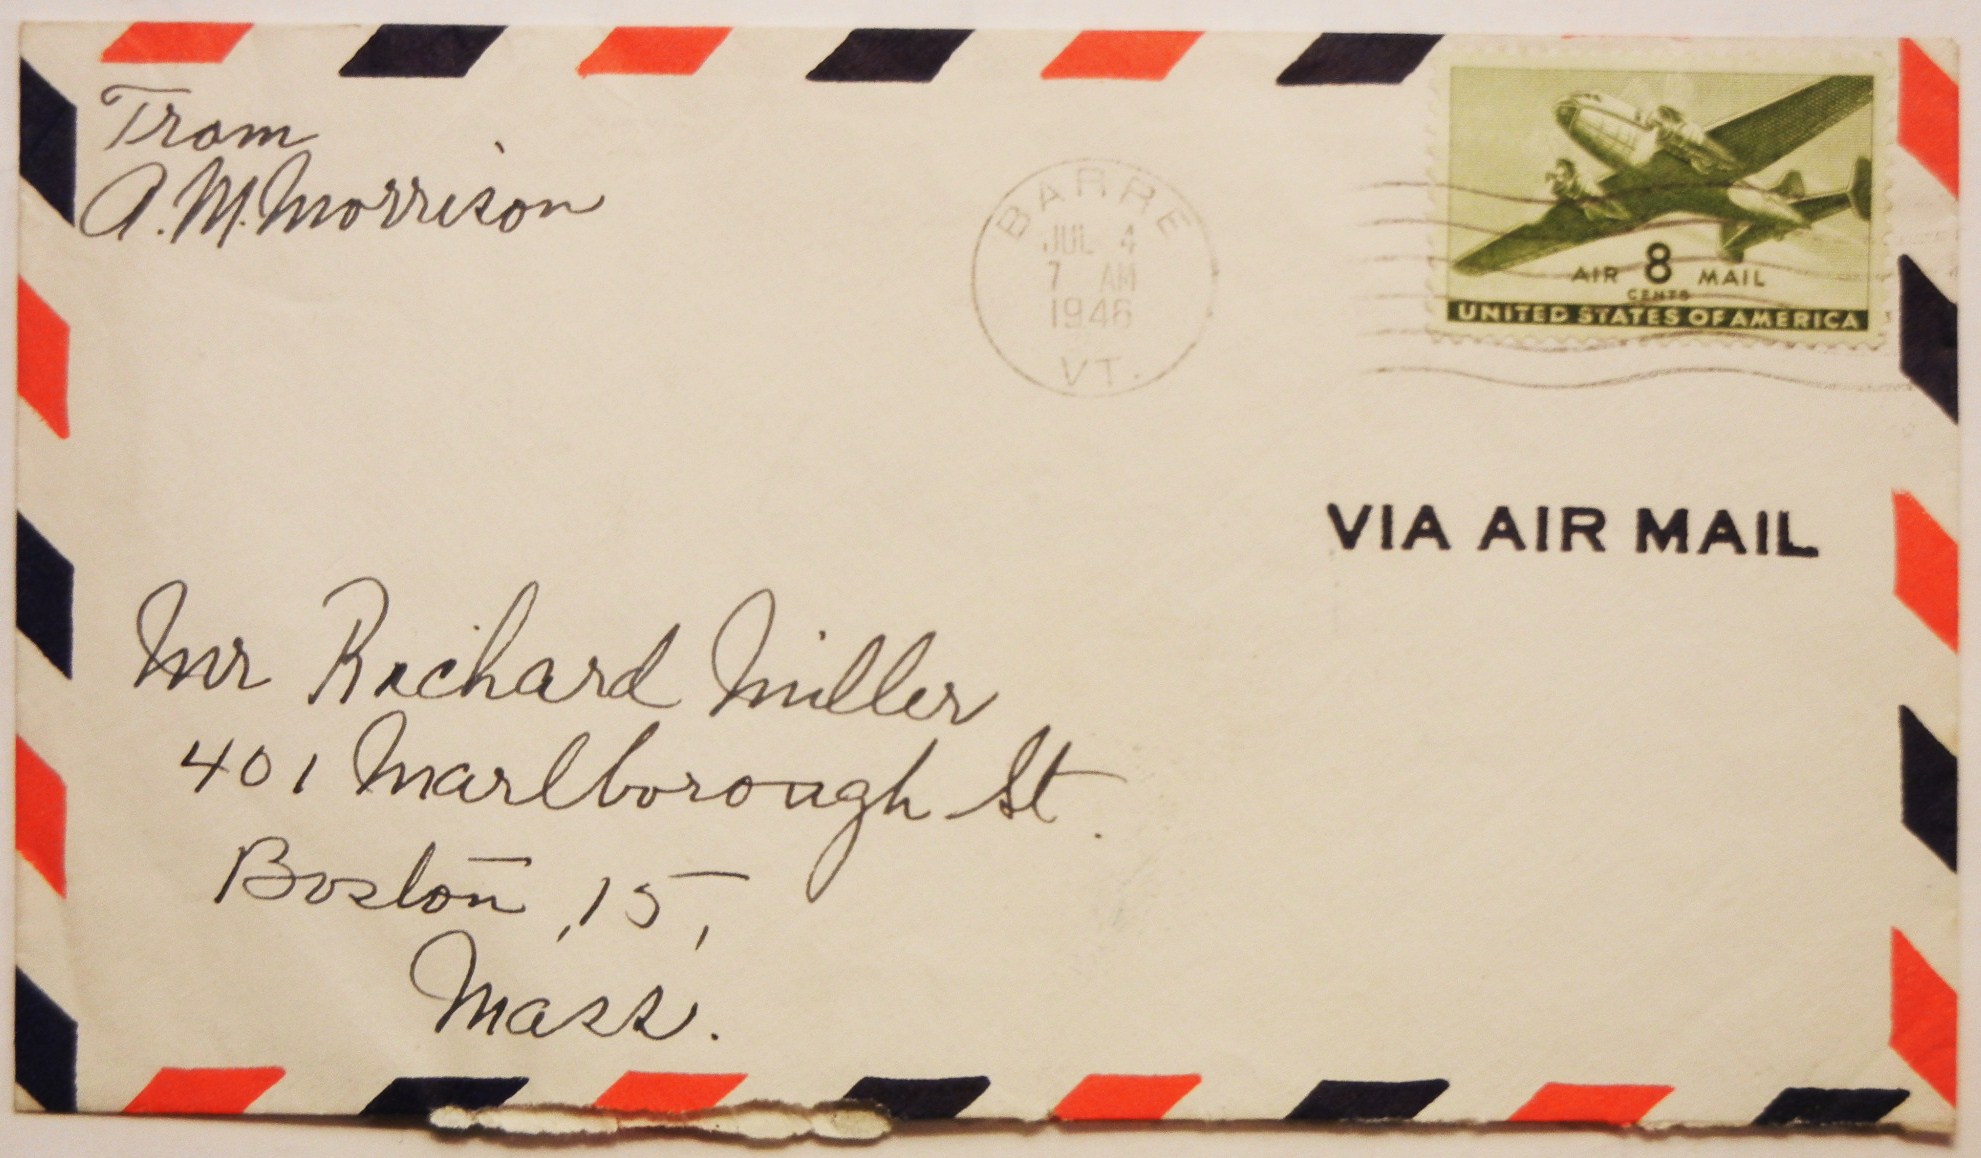 From
A. M. Morrison
BARRE
JUL 4
7 AM
1946
VT.
AIR 8 MAIL
CENTS
UNITED STATES OF AMERICA
VIA AIR MAIL
Mr Richard Miller
401 Marlborough St.
Boston, 15,
Mass.